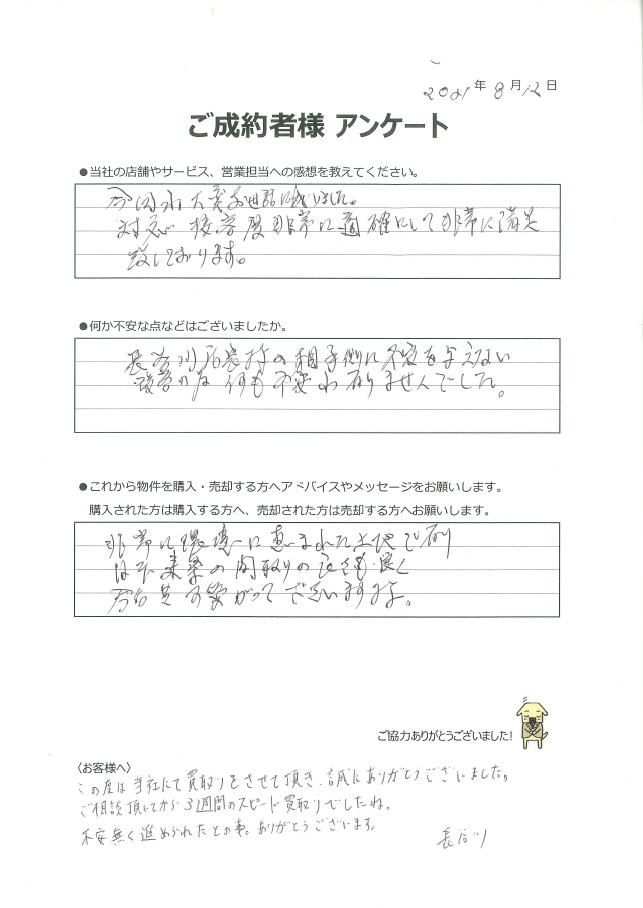 2021年8月12日
ご成約者様 アンケート
●当社の店舗やサービス、営業担当への感想を教えてください。
今回は大変お世話に ました。
対応 接客 非常に適確にして非常に満足
致しております。
●何か不安な点などはございましたか。
長谷川 の相手側に不安を与えない
何も不安わ有りませんでした。
●これから物件を購入・売却する方へアドバイスやメッセージをお願いします。
購入された方は購入する方へ、売却された方は売却する方へお願いします。
非常に環境に恵まれた土地で有り
の間取りの 良く
ございますよ。
ご協力ありがとうございました!
〈お客様へ〉
この度は当社にて買取りをさせて頂き、誠にありがとうございました。
ご相談頂いてから3週間のスピード買取りでしたね。
不安無く進められたとの事。ありがとうございます。
長谷川